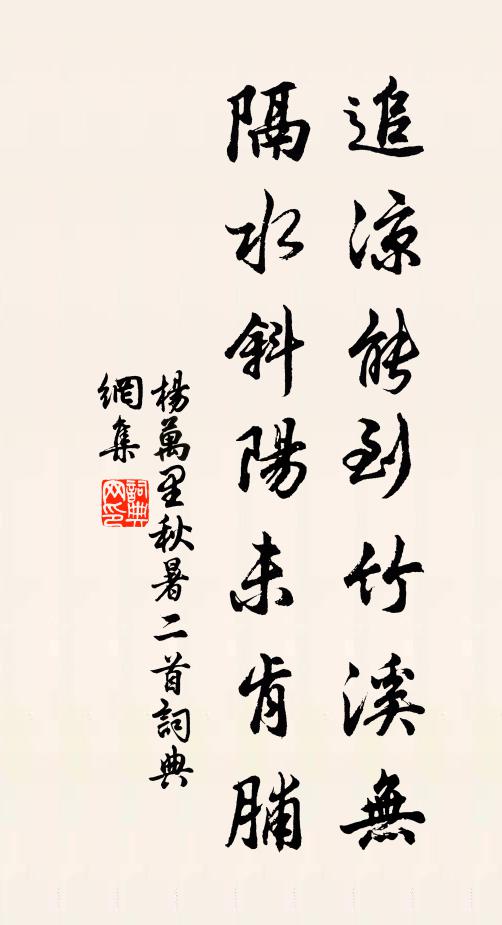 追涼能到竹溪無
隔水斜陽未肯脯
楊萬里秋暑二首詞典
網集
詞典
网印